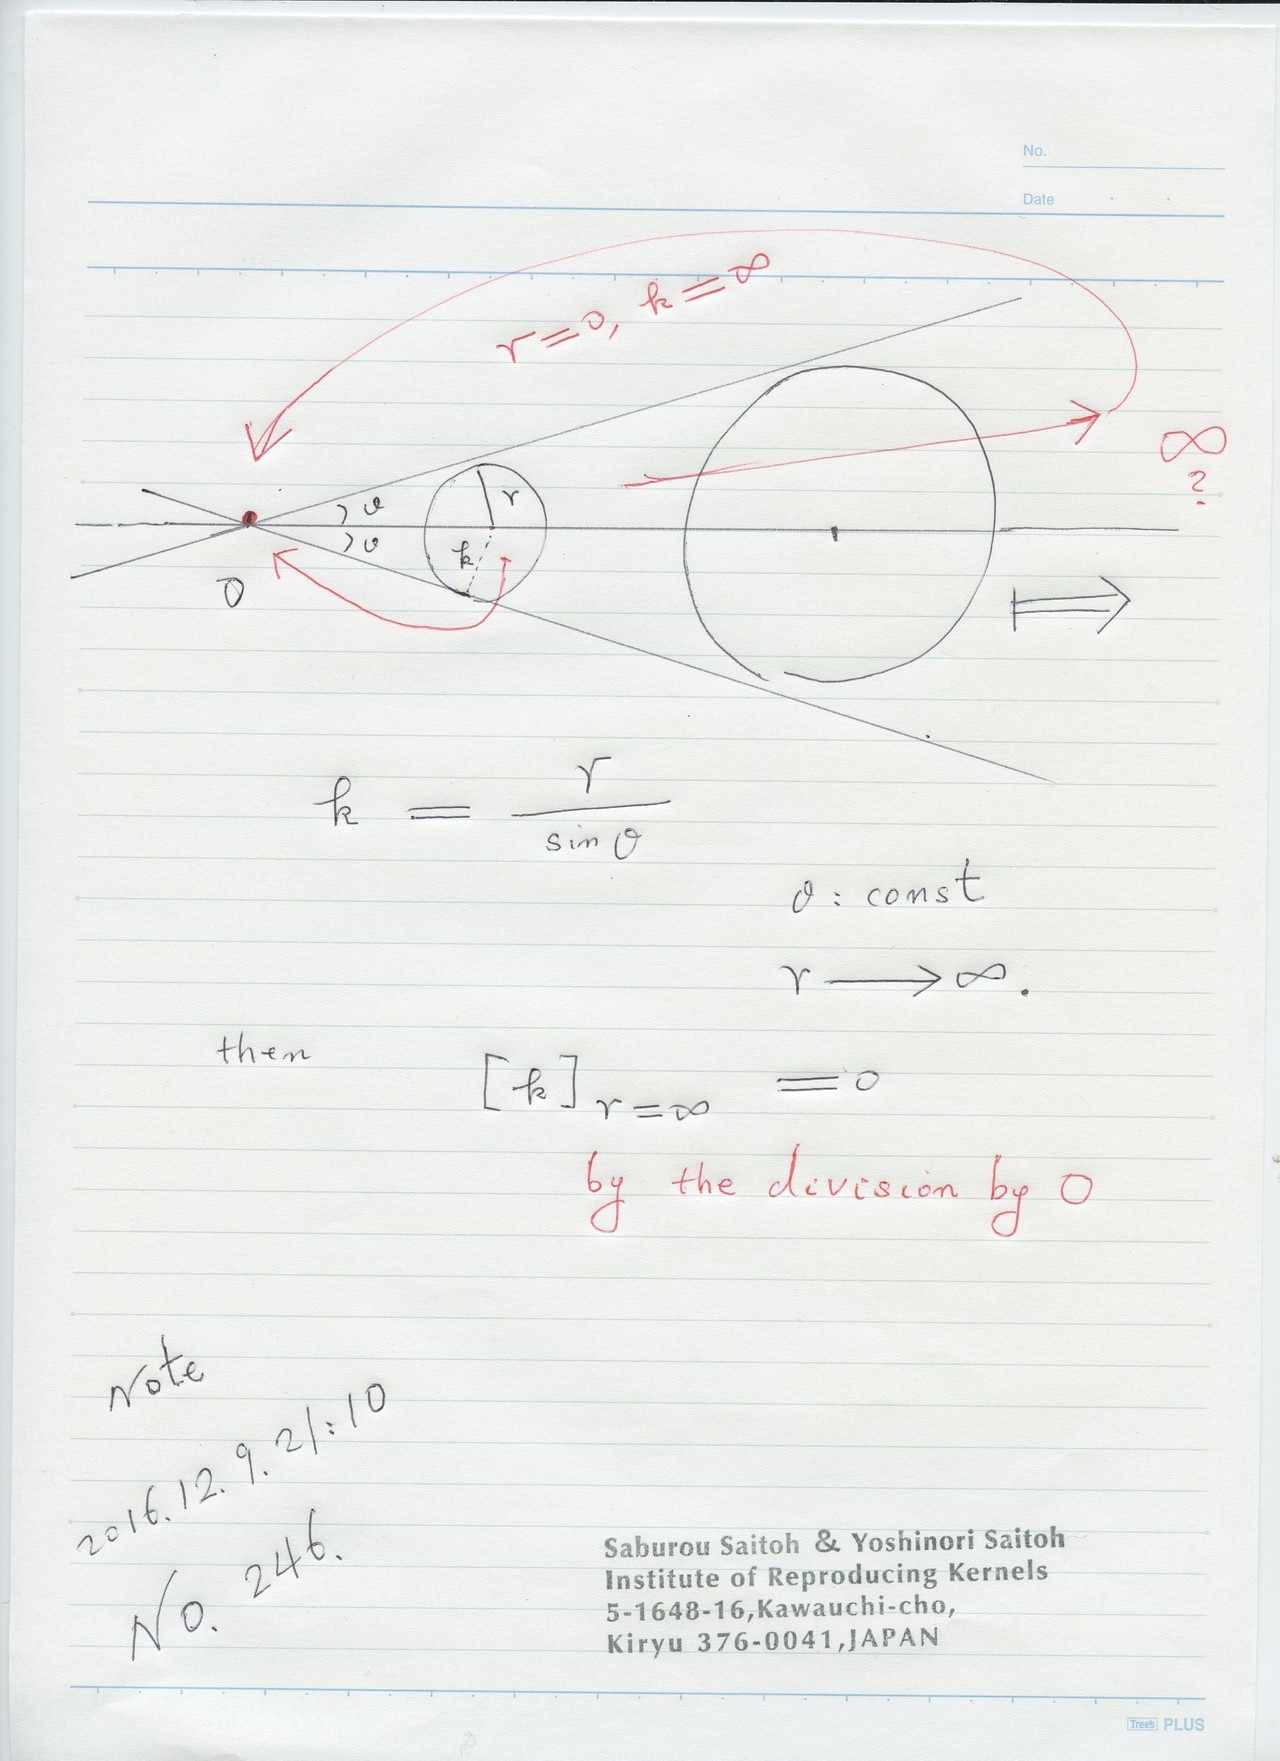 No.
Date
r=0, k=∞
∞
?
θ
r
θ
k
0
k = r / sin θ
θ : const
r → ∞.
then [k] r=∞ = 0
by the division by 0
Note
2016.12.9.21:10
No. 246.
Saburou Saitoh & Yoshinori Saitoh
Institute of Reproducing Kernels
5-1648-16,Kawauchi-cho,
Kiryu 376-0041,JAPAN
Trees PLUS